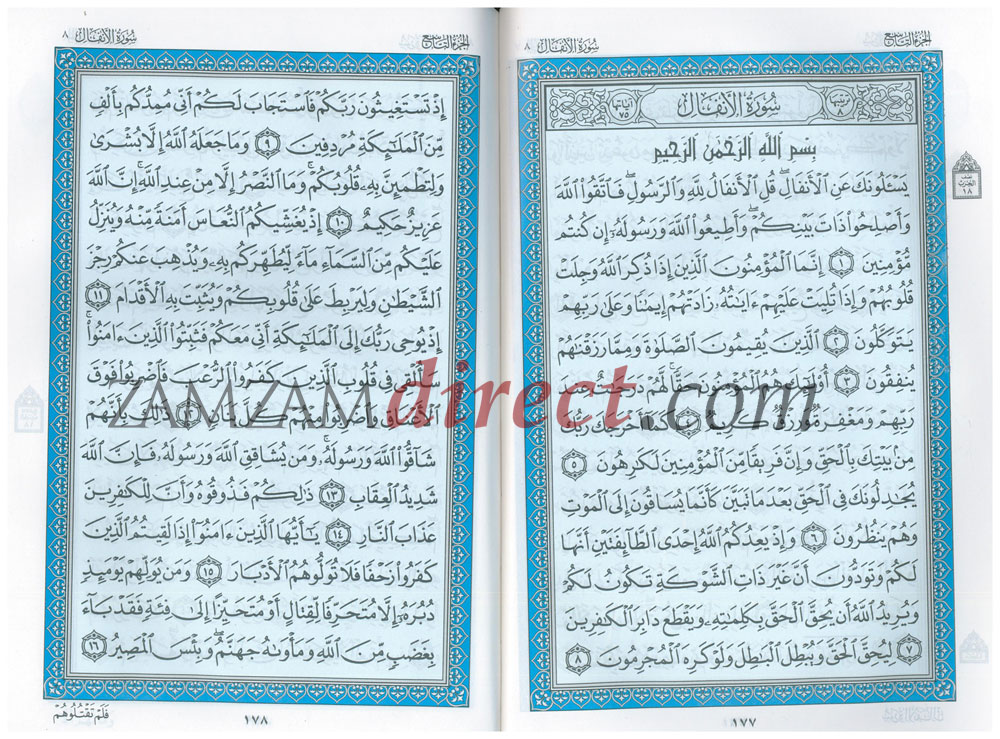 الجزء التاسع
سورة الأنفال ٨
ترتيبها ٨
سُورَةُ الأَنفَالِ
آياتها ٧٥
بِسْمِ اللَّهِ الرَّحْمَٰنِ الرَّحِيمِ
يَسْـَٔلُونَكَ عَنِ ٱلْأَنفَالِ ۖ قُلِ ٱلْأَنفَالُ لِلَّهِ وَٱلرَّسُولِ ۖ فَٱتَّقُوا۟ ٱللَّهَ
وَأَصْلِحُوا۟ ذَاتَ بَيْنِكُمْ ۖ وَأَطِيعُوا۟ ٱللَّهَ وَرَسُولَهُۥٓ إِن كُنتُم
مُّؤْمِنِينَ ١ إِنَّمَا ٱلْمُؤْمِنُونَ ٱلَّذِينَ إِذَا ذُكِرَ ٱللَّهُ وَجِلَتْ
قُلُوبُهُمْ وَإِذَا تُلِيَتْ عَلَيْهِمْ ءَايَٰتُهُۥ زَادَتْهُمْ إِيمَٰنًا وَعَلَىٰ رَبِّهِمْ
يَتَوَكَّلُونَ ٢ ٱلَّذِينَ يُقِيمُونَ ٱلصَّلَوٰةَ وَمِمَّا رَزَقْنَٰهُمْ
يُنفِقُونَ ٣ أُو۟لَٰٓئِكَ هُمُ ٱلْمُؤْمِنُونَ حَقًّا ۚ لَّهُمْ دَرَجَٰتٌ عِندَ
رَبِّهِمْ وَمَغْفِرَةٌ وَرِزْقٌ كَرِيمٌ ٤ كَمَآ أَخْرَجَكَ رَبُّكَ
مِنۢ بَيْتِكَ بِٱلْحَقِّ وَإِنَّ فَرِيقًا مِّنَ ٱلْمُؤْمِنِينَ لَكَٰرِهُونَ ٥
يُجَٰدِلُونَكَ فِى ٱلْحَقِّ بَعْدَ مَا تَبَيَّنَ كَأَنَّمَا يُسَاقُونَ إِلَى ٱلْمَوْتِ
وَهُمْ يَنظُرُونَ ٦ وَإِذْ يَعِدُكُمُ ٱللَّهُ إِحْدَى ٱلطَّآئِفَتَيْنِ أَنَّهَا
لَكُمْ وَتَوَدُّونَ أَنَّ غَيْرَ ذَاتِ ٱلشَّوْكَةِ تَكُونُ لَكُمْ
وَيُرِيدُ ٱللَّهُ أَن يُحِقَّ ٱلْحَقَّ بِكَلِمَٰتِهِۦ وَيَقْطَعَ دَابِرَ ٱلْكَٰفِرِينَ
٧ لِيُحِقَّ ٱلْحَقَّ وَيُبْطِلَ ٱلْبَٰطِلَ وَلَوْ كَرِهَ ٱلْمُجْرِمُونَ ٨
١٧٧
نصف الحزب ١٨
الجزء التاسع
سورة الأنفال ٨
إِذْ تَسْتَغِيثُونَ رَبَّكُمْ فَٱسْتَجَابَ لَكُمْ أَنِّى مُمِدُّكُم بِأَلْفٍ
مِّنَ ٱلْمَلَٰٓئِكَةِ مُرْدِفِينَ ٩ وَمَا جَعَلَهُ ٱللَّهُ إِلَّا بُشْرَىٰ
وَلِتَطْمَئِنَّ بِهِۦ قُلُوبُكُمْ ۚ وَمَا ٱلنَّصْرُ إِلَّا مِنْ عِندِ ٱللَّهِ ۚ إِنَّ ٱللَّهَ
عَزِيزٌ حَكِيمٌ ١٠ إِذْ يُغَشِّيكُمُ ٱلنُّعَاسَ أَمَنَةً مِّنْهُ وَيُنَزِّلُ
عَلَيْكُم مِّنَ ٱلسَّمَآءِ مَآءً لِّيُطَهِّرَكُم بِهِۦ وَيُذْهِبَ عَنكُمْ رِجْزَ
ٱلشَّيْطَٰنِ وَلِيَرْبِطَ عَلَىٰ قُلُوبِكُمْ وَيُثَبِّتَ بِهِ ٱلْأَقْدَامَ ١١
إِذْ يُوحِى رَبُّكَ إِلَى ٱلْمَلَٰٓئِكَةِ أَنِّى مَعَكُمْ فَثَبِّتُوا۟ ٱلَّذِينَ ءَامَنُوا۟ ۚ
سَأُلْقِى فِى قُلُوبِ ٱلَّذِينَ كَفَرُوا۟ ٱلرُّعْبَ فَٱضْرِبُوا۟ فَوْقَ
ٱلْأَعْنَاقِ وَٱضْرِبُوا۟ مِنْهُمْ كُلَّ بَنَانٍ ١٢ ذَٰلِكَ بِأَنَّهُمْ
شَآقُّوا۟ ٱللَّهَ وَرَسُولَهُۥ ۚ وَمَن يُشَاقِقِ ٱللَّهَ وَرَسُولَهُۥ فَإِنَّ ٱللَّهَ
شَدِيدُ ٱلْعِقَابِ ١٣ ذَٰلِكُمْ فَذُوقُوهُ وَأَنَّ لِلْكَٰفِرِينَ
عَذَابَ ٱلنَّارِ ١٤ يَٰٓأَيُّهَا ٱلَّذِينَ ءَامَنُوٓا۟ إِذَا لَقِيتُمُ ٱلَّذِينَ
كَفَرُوا۟ زَحْفًا فَلَا تُوَلُّوهُمُ ٱلْأَدْبَارَ ١٥ وَمَن يُوَلِّهِمْ يَوْمَئِذٍ
دُبُرَهُۥٓ إِلَّا مُتَحَرِّفًا لِّقِتَالٍ أَوْ مُتَحَيِّزًا إِلَىٰ فِئَةٍ فَقَدْ بَآءَ
بِغَضَبٍ مِّنَ ٱللَّهِ وَمَأْوَىٰهُ جَهَنَّمُ ۖ وَبِئْسَ ٱلْمَصِيرُ ١٦
١٧٨
فَلَمْ تَقْتُلُوهُمْ
ZAMZAMdirect.com